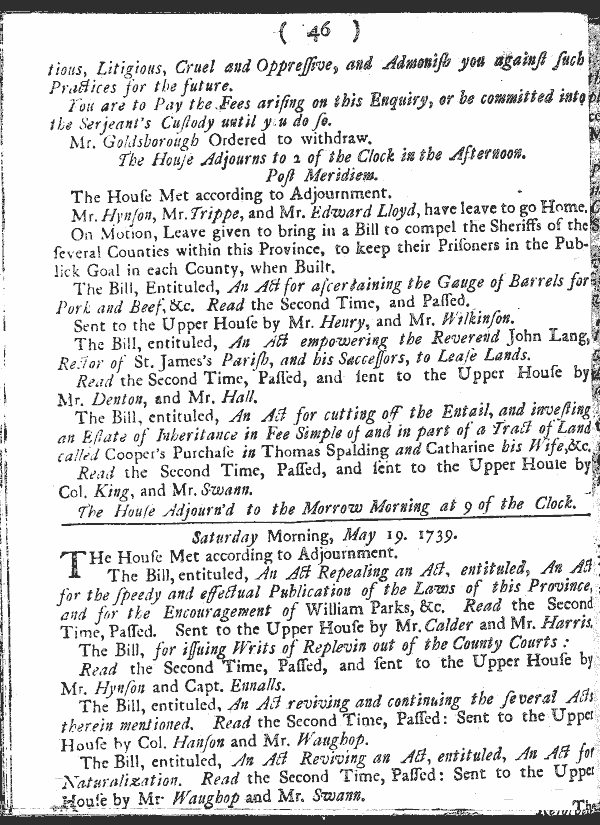 ( 46 )
tious, Litigious, Cruel and Oppreſſive, and Admoniſh you againſt ſuch
Practices for the future.
You are to Pay the Fees ariſing on this Enquiry, or be committed into
the Serjeant's Cuſtody until you do ſo.
Mr. Goldsborough Ordered to withdraw.
The Houſe Adjourns to 2 of the Clock in the Afternoon.
Poſt Meridiem.
The Houſe Met according to Adjournment.
Mr. Hynſon, Mr. Trippe, and Mr. Edward Lloyd, have leave to go Home.
On Motion, Leave given to bring in a Bill to compel the Sheriffs of the
ſeveral Counties within this Province, to keep their Priſoners in the Pub-
lick Goal in each County, when Built.
The Bill, Entituled, An Act for aſcertaining the Gauge of Barrels for
Pork and Beef, &c. Read the Second Time, and Paſſed.
Sent to the Upper Houſe by Mr. Henry, and Mr. Wilkinſon.
The Bill, entituled, An Act empowering the Reverend John Lang,
Rector of St. James's Pariſh, and his Succeſſors, to Leaſe Lands.
Read the Second Time, Paſſed, and ſent to the Upper Houſe by
Mr. Denton, and Mr. Hall.
The Bill, entituled, An Act for cutting off the Entail, and inveſting
an Eſtate of Inheritance in Fee Simple of and in part of a Tract of Land
called Cooper's Purchaſe in Thomas Spalding and Catharine his Wife, &c.
Read the Second Time, Paſſed, and ſent to the Upper Houſe by
Col. King, and Mr. Swann.
The Houſe Adjourn'd to the Morrow Morning at 9 of the Clock.
Saturday Morning, May 19. 1739.
THe Houſe Met according to Adjournment.
The Bill, entituled, An Act Repealing an Act, entituled, An Act
for the ſpeedy and effectual Publication of the Laws of this Province,
and for the Encouragement of William Parks, &c. Read the Second
Time, Paſſed. Sent to the Upper Houſe by Mr. Calder and Mr. Harris.
The Bill, for iſſuing Writs of Replevin out of the County Courts :
Read the Second Time, Paſſed, and ſent to the Upper Houſe by
Mr. Hynſon and Capt. Ennalls.
The Bill, entituled, An Act reviving and continuing the ſeveral Acts
therein mentioned. Read the Second Time, Paſſed: Sent to the Upper
Houſe by Col. Hanſon and Mr. Waughop.
The Bill, entituled, An Act Reviving an Act, entituled, An Act for
Naturalization. Read the Second Time, Paſſed: Sent to the Upper
Houſe by Mr. Waughop and Mr. Swann.
The